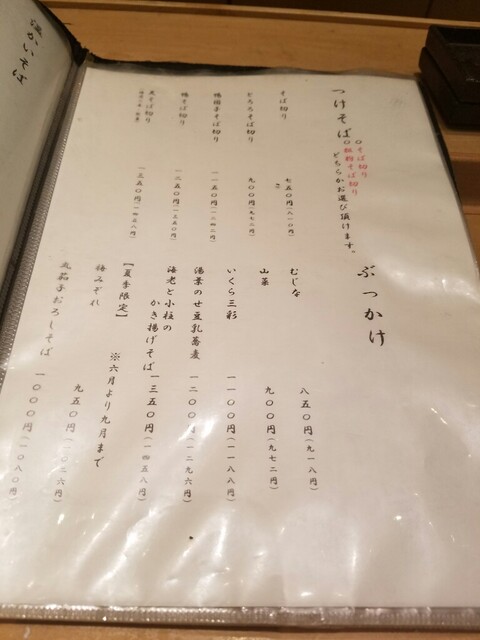 つけそば
○そば切り
○粗挽そば切り
どちらかお選び頂けます。
そば切り
七五〇円(八一〇円)
とろろそば切り
九〇〇円(九七二円)
鴨団子そば切り
一一五〇円(一二四二円)
鴨そば切り
一二五〇円(一三五〇円)
天そば切り
一三五〇円(一四五八円)
ぶっかけ
むじな
八五〇円(九一八円)
山菜
九〇〇円(九七二円)
いくら三彩
一一〇〇円(一一八八円)
湯葉のせ豆乳蕎麦
一二〇〇円(一二九六円)
海老と小柱の
かき揚げそば
一三五〇円(一四五八円)
【夏季限定】
※六月より九月まで
梅みぞれ
九五〇円(一〇二六円)
丸茄子おろしそば
一〇〇〇円(一〇八〇円)
温かいそば